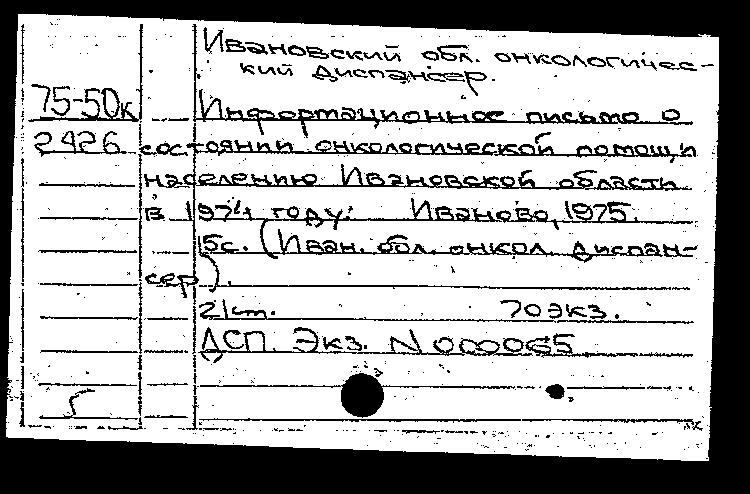 Ивановский обл. онкологичес-
кий диспансер.
75-50к Информационное письмо о
2426 состоянии онкологической помощи
населению Ивановской области
в 1974 году. Иваново, 1975.
15с. (Иван. обл. онкол. диспан-
сер).
21см. 70экз.
ДСП. Экз. N 000065
5